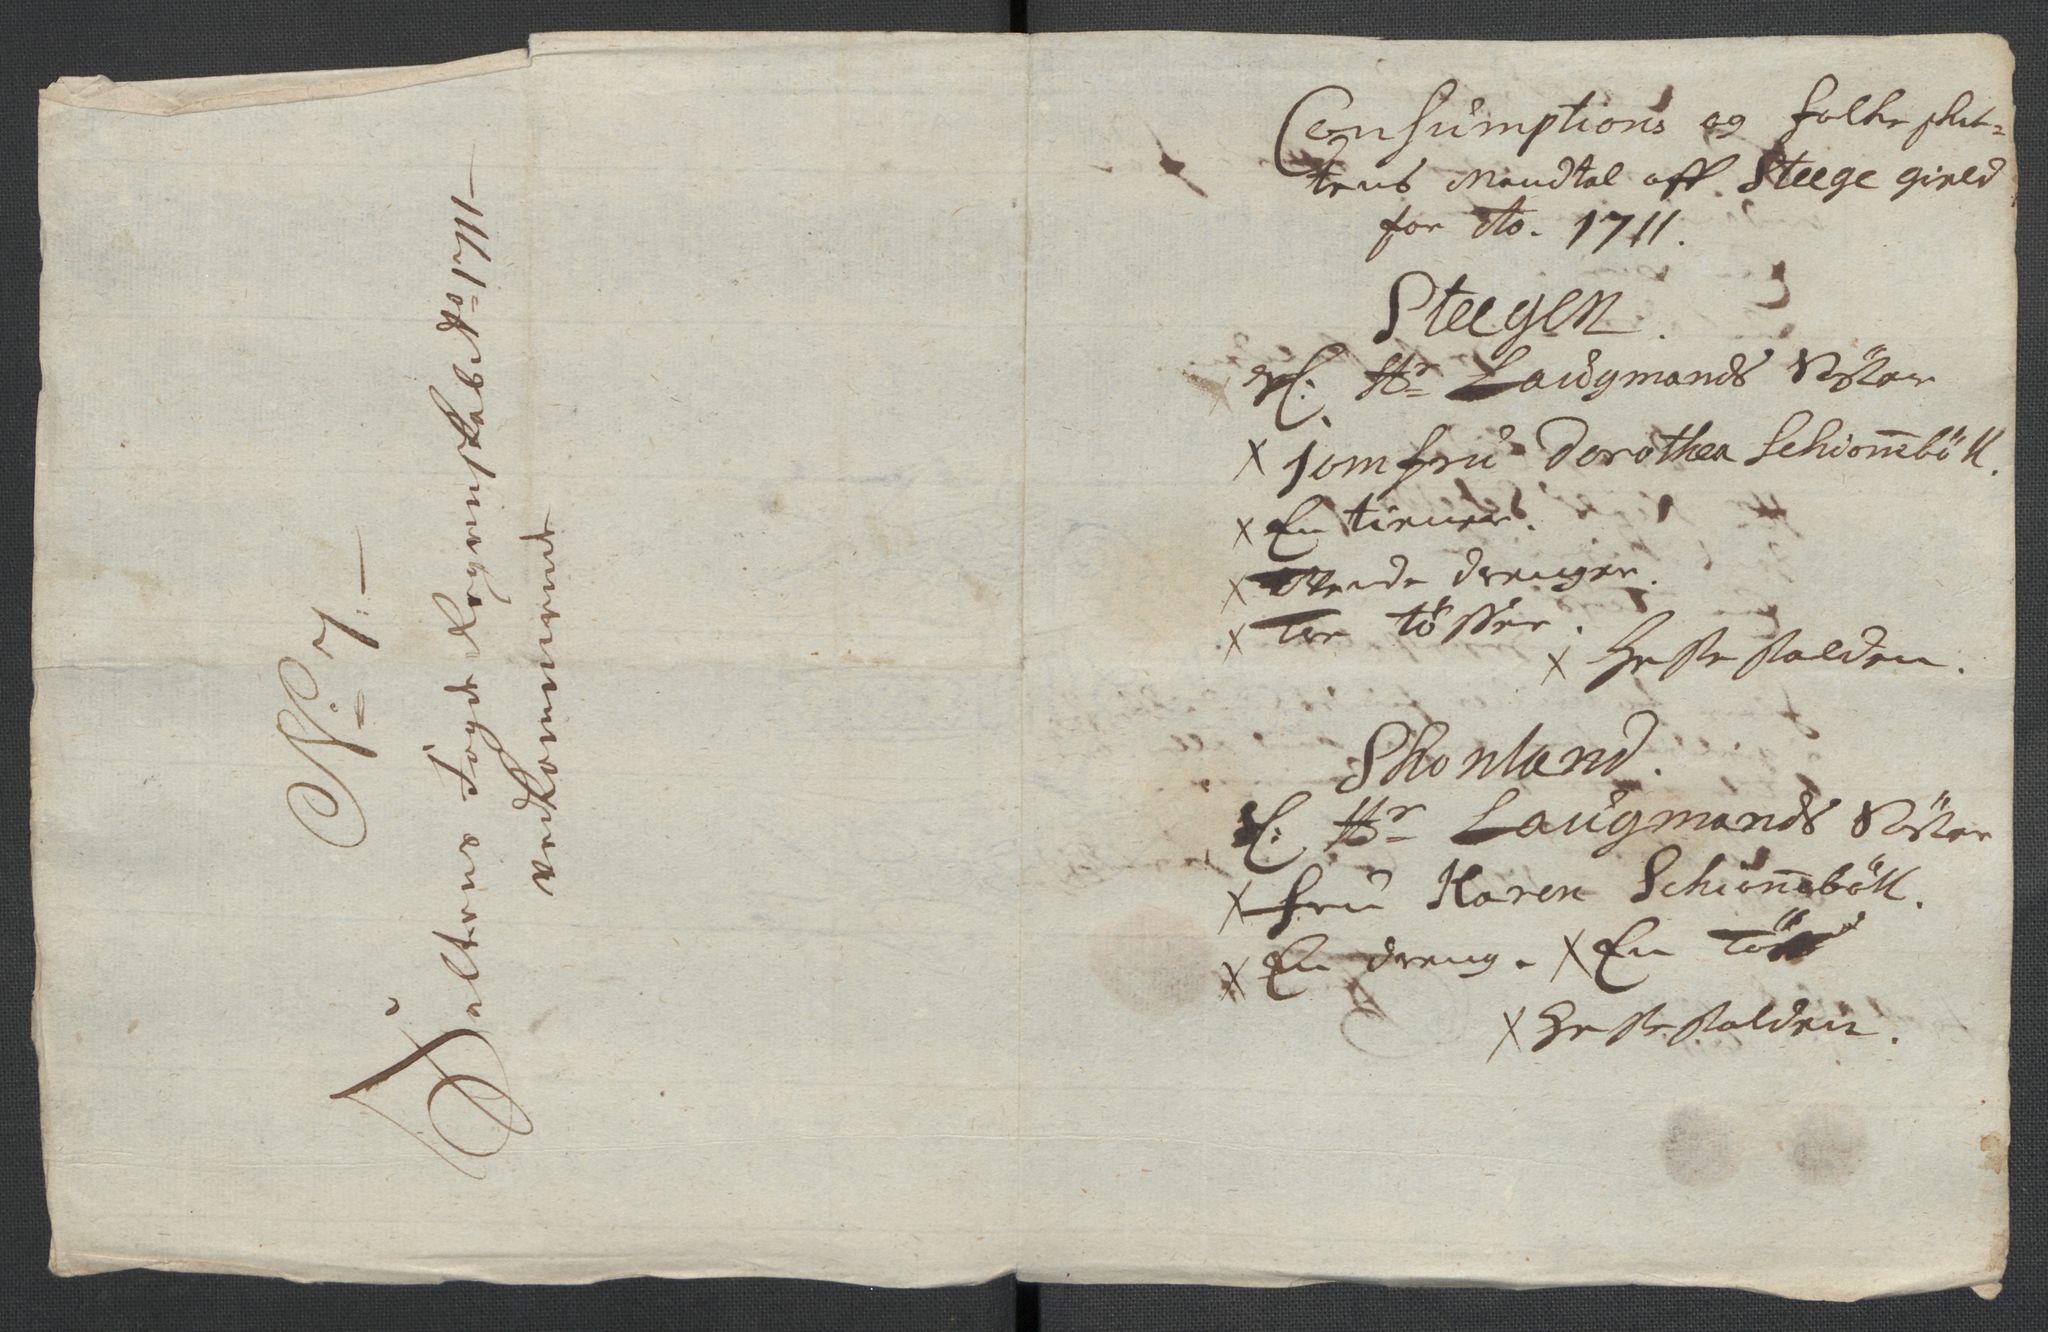 No. 7.
Saltens Fogd Regenskab Ao 1711
vedkommende
Consumptions og folke skat-
tens Mandtal aff Steege gield
for Ao. 1711.
Steegen.
Sl. Hr Laugmands Söster
x Jomfrü Dorothea Schionnebøll.
x En tiener.
x Tvende drenger.
x Tre tösser. x Hestestalden.
Skonland.
Sl. Hr Laugmands Söster
x Frü Karen Schionnebøll.
x En dreng. x En Tös
x Hestestalden.